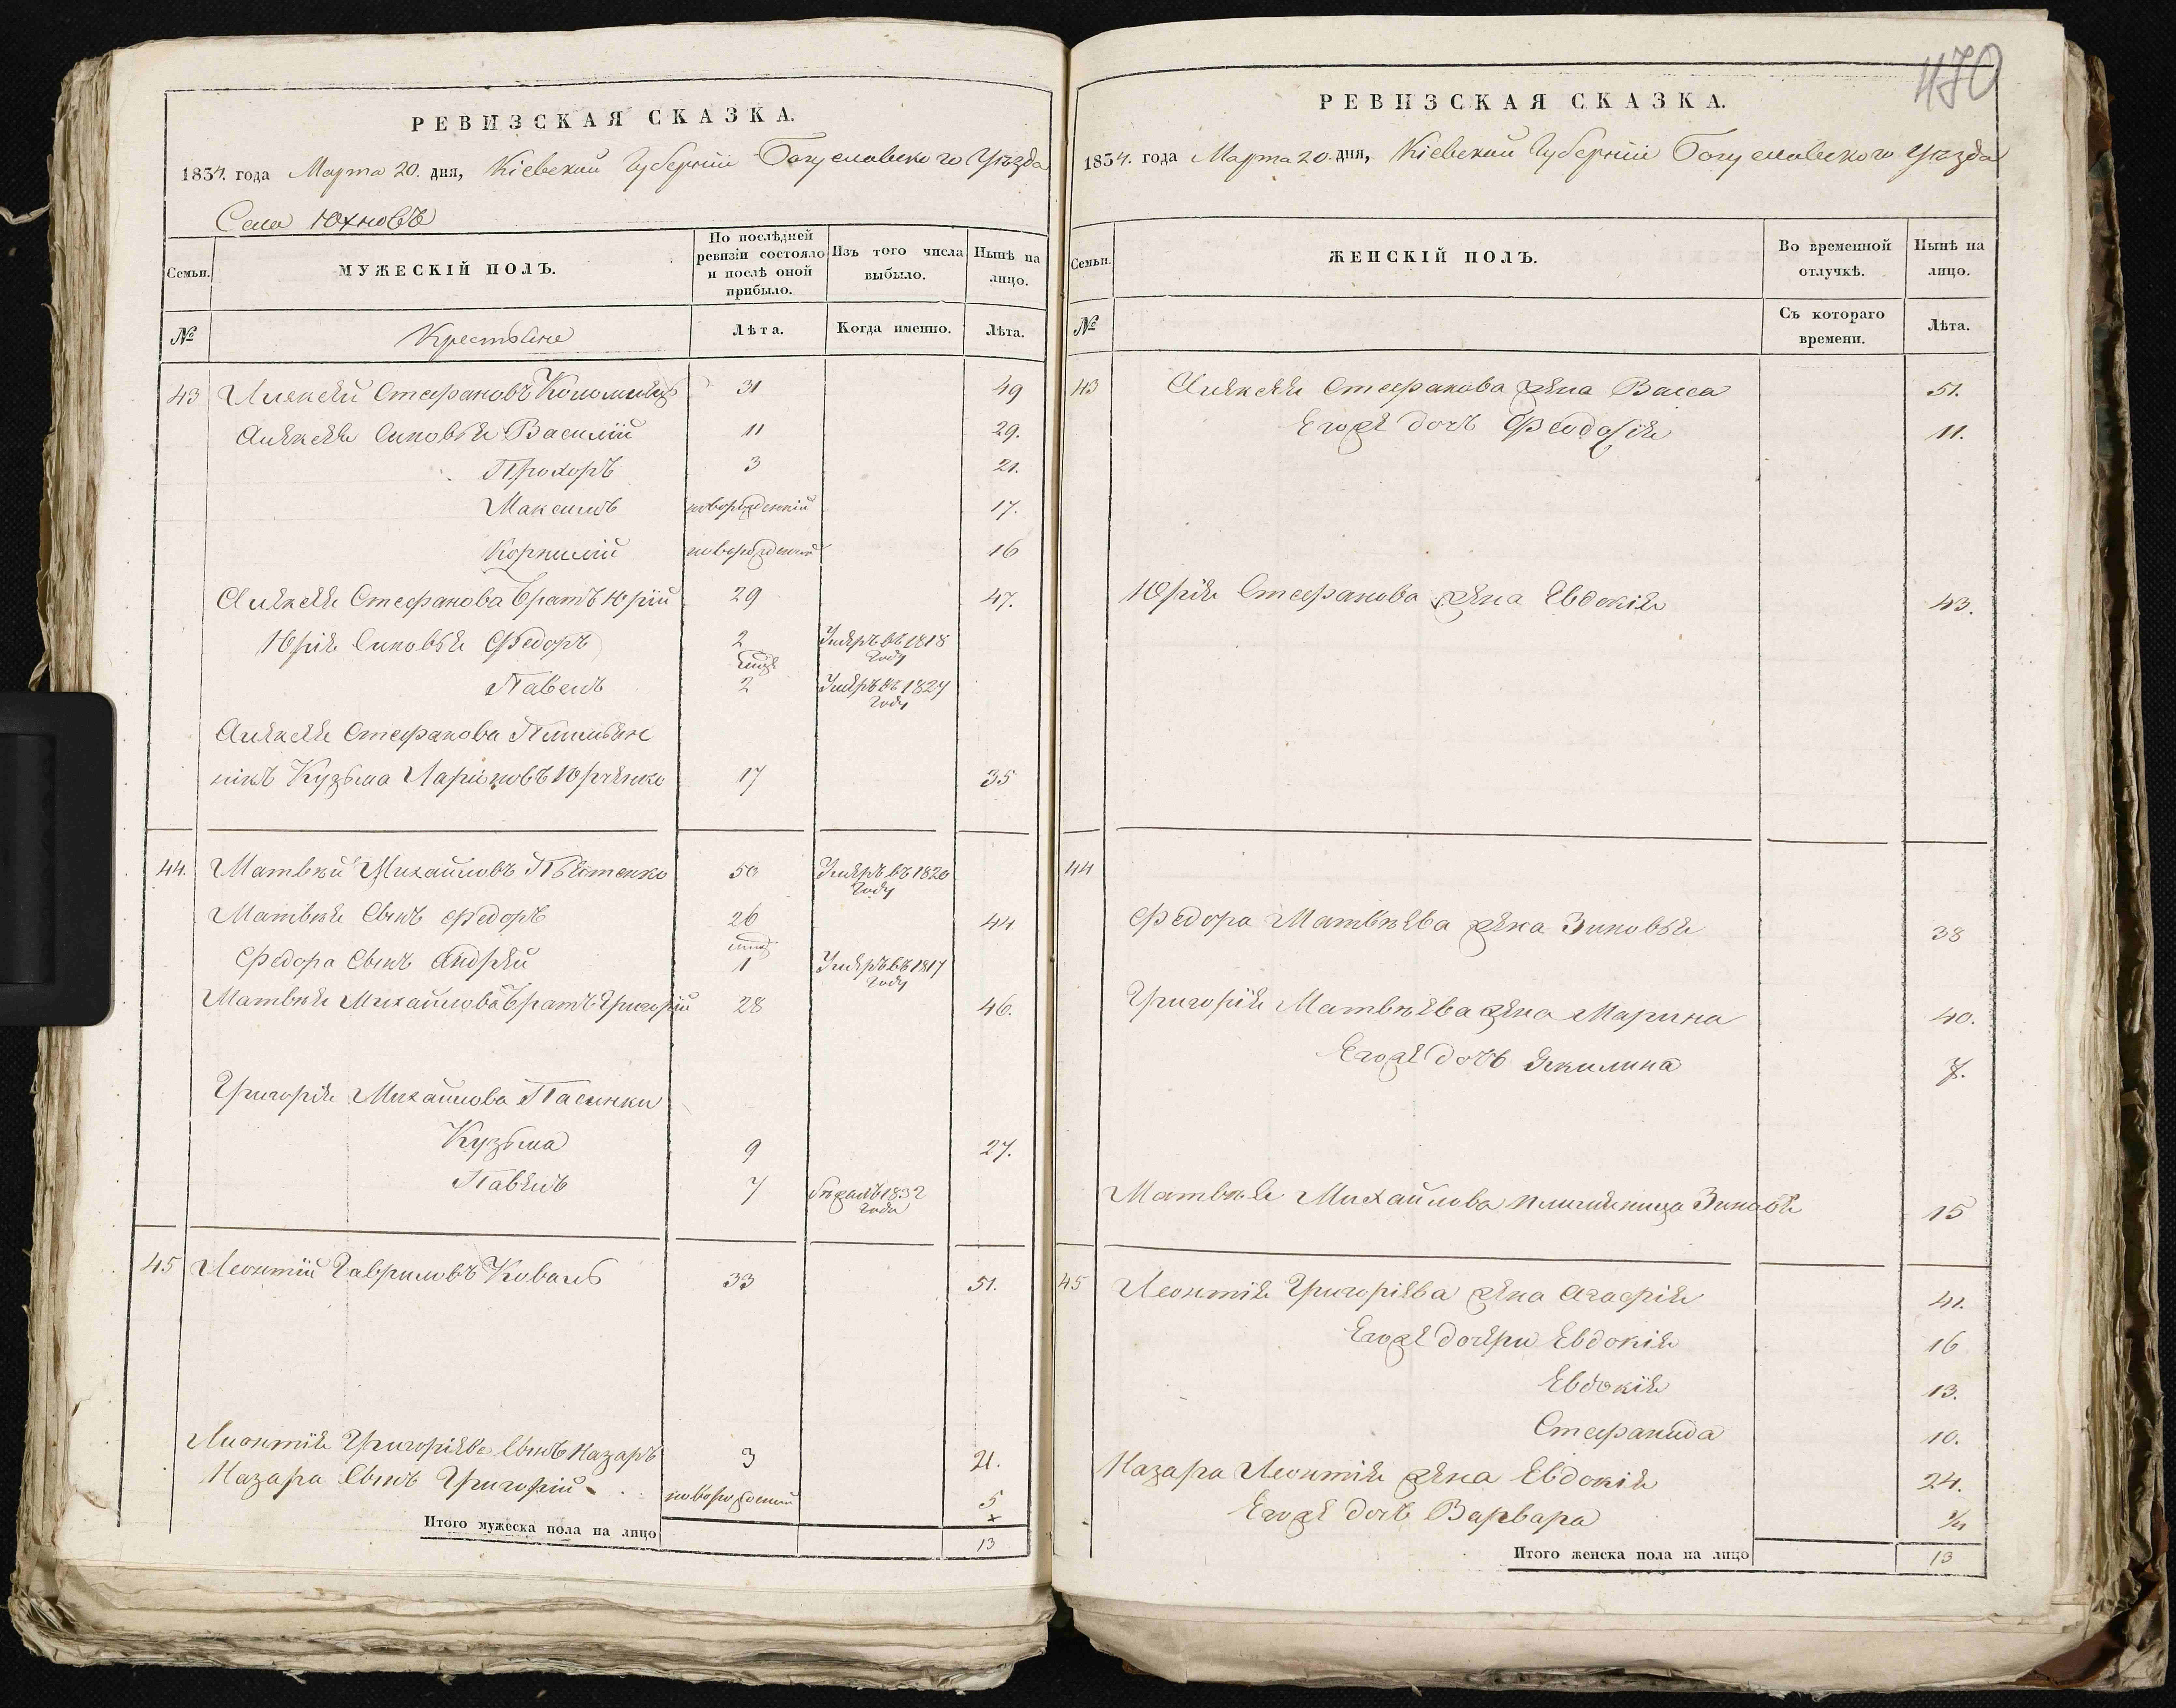 РЕВИЗСКАЯ СКАЗКА.
1834. года Марта 20. дня, Кіевскай Губерніи Богуславского Уѣзда
Села Юхновъ
Семьи.
МУЖЕСКІЙ ПОЛЪ.
По послѣдней ревизіи состояло и послѣ оной прибыло.
Изъ того числа выбыло.
Нынѣ на лицо.
№
Крестьяне
Лѣта.
Когда именно.
Лѣта.
43 Алексѣй Стефановъ Коломиецъ 31 49
Алексея Синовья Василій 11 29.
Прохоръ 3 21.
Максимъ новорожденній 17.
Корнилій новорожденній 16
Алексея Стефанова братъ Юрій 29 47.
Юрія Синовья Федоръ 2 Умеръ въ 1818 году
Еще
Павелъ 2 Умеръ въ 1824 году
Алексея Стефанова Племьян
никъ Кузьма Ларіоновъ Юрченко 17 35
44. Матвѣй Михайловъ 50 Умеръ въ 1820 году
Матвѣя Сынъ Федоръ 26 44
Федора Сынъ Андрей 1 Умеръ въ 1817 году
Матвѣя Михайлова братъ Григорій 28 46.
Григорія Михайлова Пасинки
Кузьма 9 27.
Павелъ 7 бѣжалъ 1832 года
45 Леонтій Гавриловъ Коваль 33 51.
Леонтія Григоріева Сынъ Назаръ 3 21.
Назара Сынъ Григорій новорожденній 5
Итого мужеска пола на лицо 13
470
РЕВИЗСКАЯ СКАЗКА.
1834. года Марта 20. дня, Кіевскай Губерніи Богуславского Уѣзда
Семьи.
ЖЕНСКІЙ ПОЛЪ.
Во временной отлучкѣ.
Нынѣ на лицо.
№
Съ котораго времени.
Лѣта.
43 Алексея Стефанова жена Васса 51.
Егоже дочь Феодосія 11.
Юрія Стефанова жена Евдокія 43.
44
Федора Матвѣева жена Зиновья 38
Григорія Матвѣева жена Марина 40.
Егоже дочь Якилина 7.
Матвѣя Михайлова племяница Зиновья 15
45 Леонтія Григоріева жена Агафія 41.
Егоже дочери Евдокія 16
Евдокія 13.
Стефанида 10.
Назара Леонтія жена Евдокія 24.
Егоже дочь Варвара
Итого женска пола на лицо 13